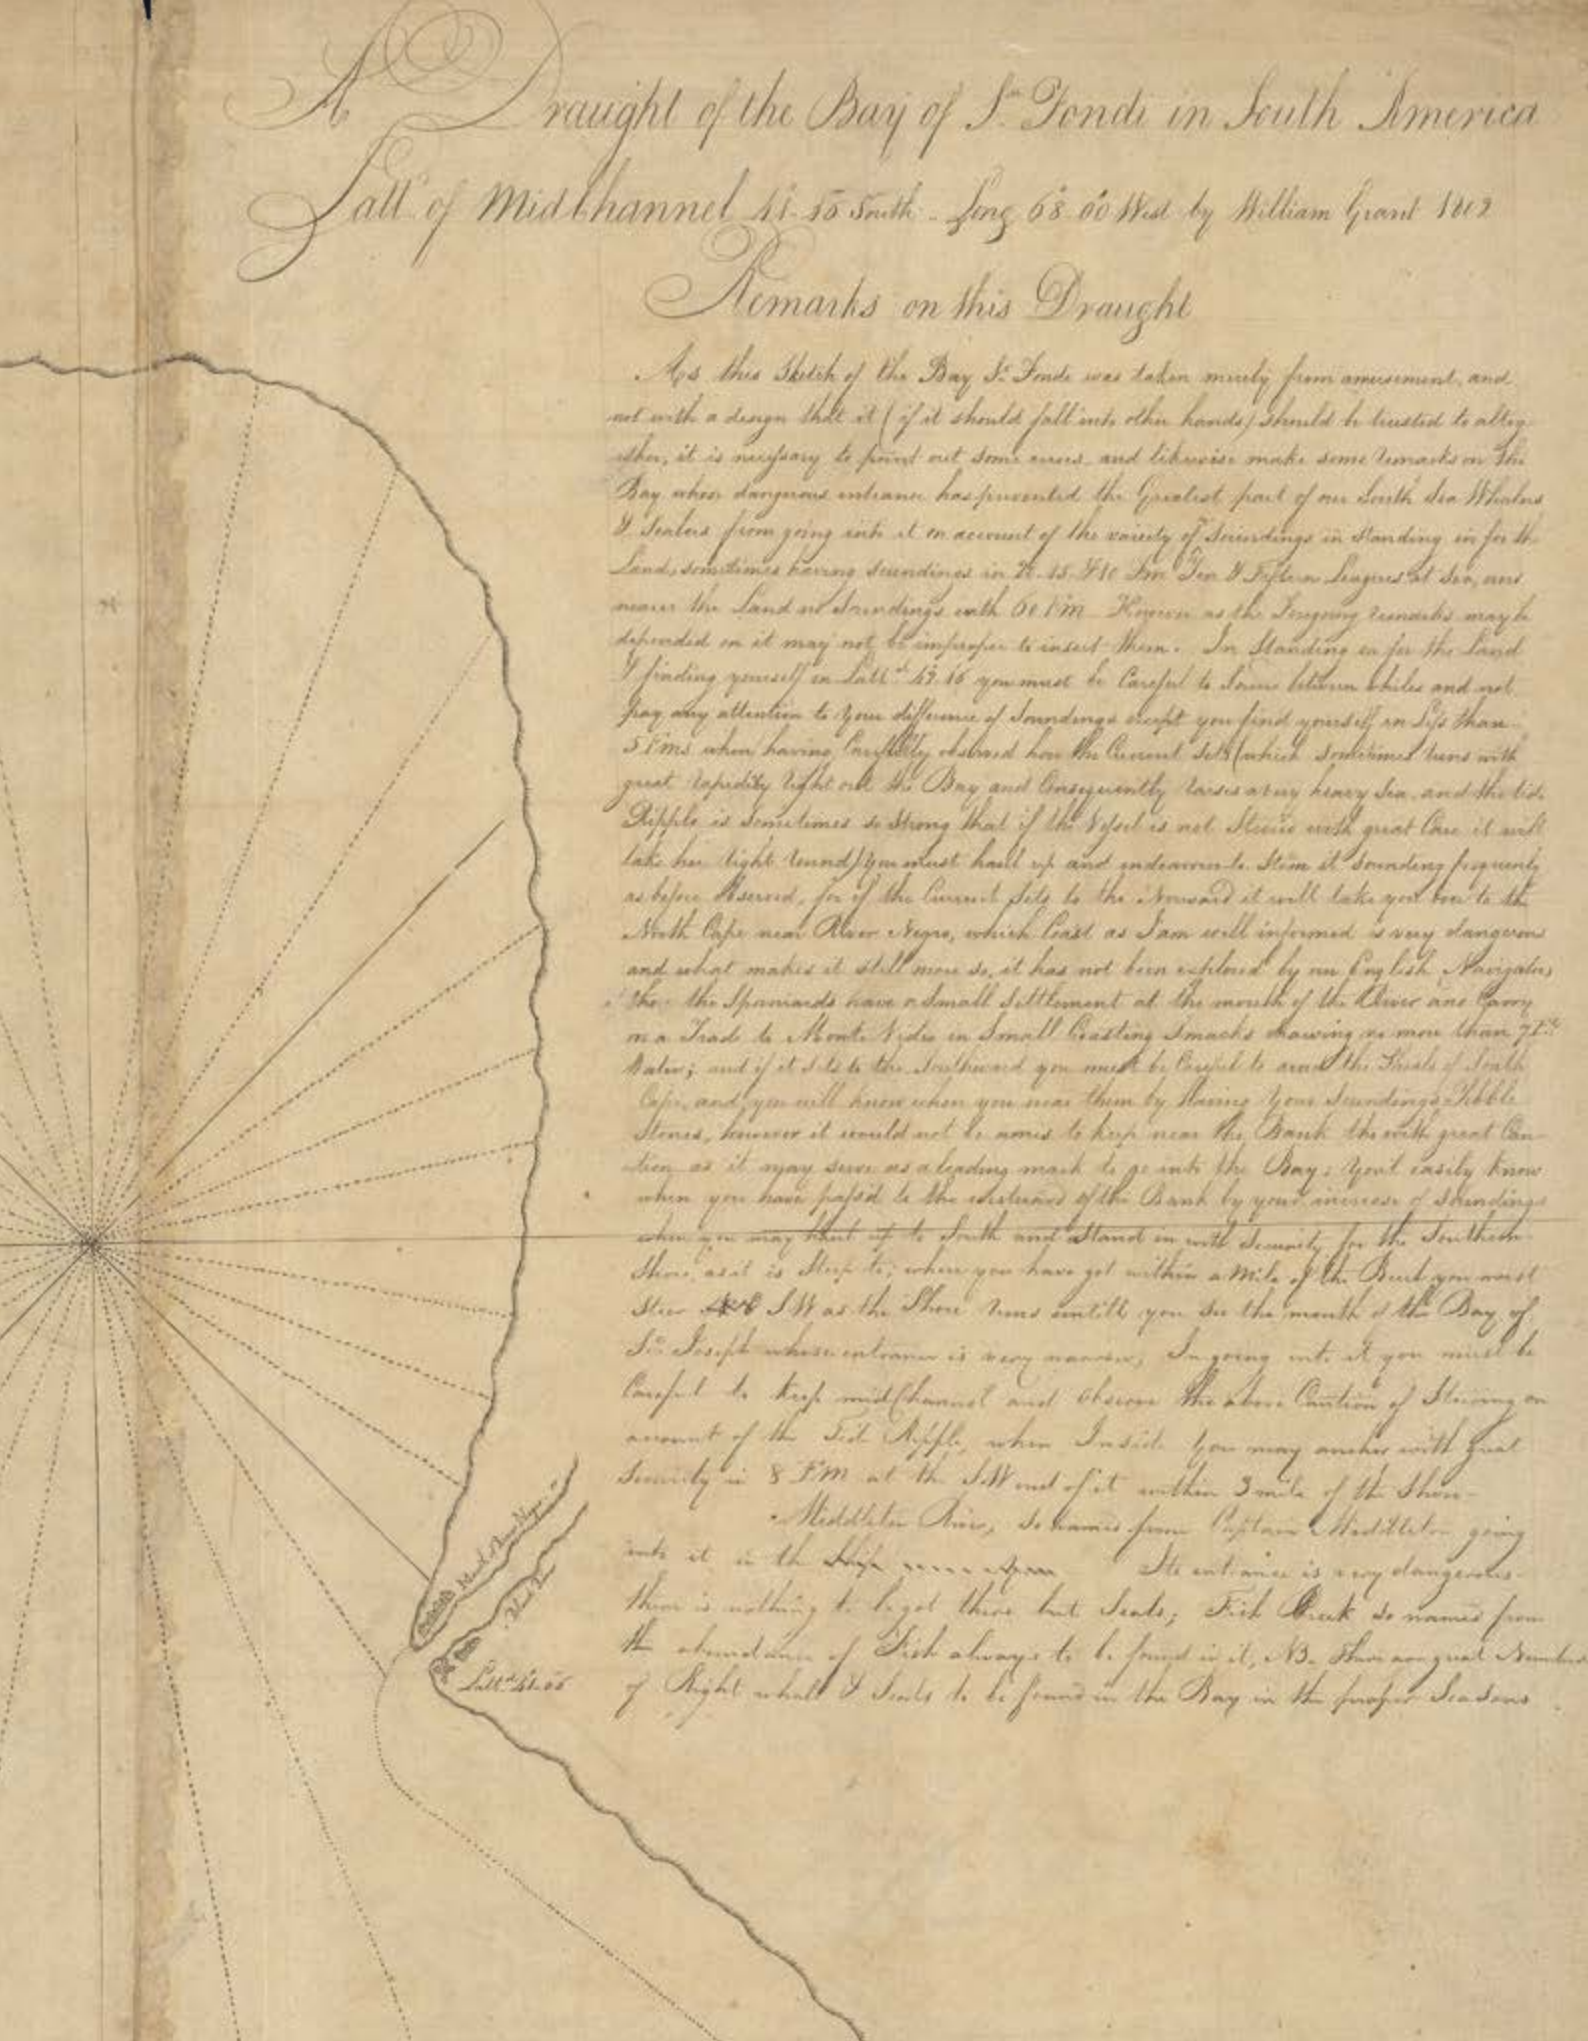 A Draught of the Bay of Sn Fondi in South America
Lattd of Mid Channel 41.55 South - Long 65.00 West by William Grant 1802
Remarks on this Draught
As this Sketch of the Bay Sn Fondi was taken merely from amusement, and
not with a design that it (if it should fall into other hands) should be trusted to altog-
ether, it is necessary to point out some errors, and likewise make some remarks on the
Bay whose dangerous entrance has prevented the Greatest part of our South Sea Whalers
& Sealers from going into it on account of the variety of Soundings in Standing in for the
Land, sometimes having soundings in 15 & 10 Fm Ten & Fifteen Leagues at Sea, and
nearer the Land no Soundings with 60 Fm However as the Foregoing remarks may be
depended on it may not be improper to insert them. In Standing in for the Land
& finding yourself in Lattd you must be Careful to Sound between whiles and not
pay any attention to your difference of Soundings except you find yourself in Less than
5 Fms when having Carefully observed how the Current Sets (which sometimes runs with
great rapidity right out the Bay and Consequently raises a very heavy Sea, and the tide
Ripple is sometimes so Strong that if the Vessel is not Steered with great Care it will
take her right round) you must haul up and endeavour to Stem it sounding frequently
as before observed, for if the Current Sets to the Norward it will take you over to the
North Cape near River Negro, which Coast as I am well informed is very dangerous
and what makes it still more so, it has not been explored by our English Navigators
tho' the Spaniards have a Small Settlement at the mouth of the River and Carry
on a Trade to Monte Video in Small Coasting Smacks drawing no more than 7 Ft
Water; and if it Sets to the Southward you must be Careful to avoid the Shoals of South
Cape, and you will know when you near them by Having Your Soundings Pebble
Stones, however it would not be amiss to keep near the Bank tho with great Cau-
tion as it may serve as a leading mark to go into the Bay; You'l easily know
when you have pass'd to the westward of the Bank by your increase of Soundings
when you may haul up to South and Stand in with Security for the Southern
Shore, as it is Steep to; when you have got within a Mile of the Beach you must
Steer SW as the Shore runs untill you See the mouth of the Bay of
Sn Joseph whose entrance is very narrow, In going into it you must be
Careful to keep mid Channel and observe the above Caution of Steering on
account of the Tide Ripple, when Inside You may anchor with great
Security in 8 FM at the S.W end of it within 3 mile of the Shore-
Middleton River, So named from Captain Middleton going
into it in the Ship Its entrance is very dangerous
there is nothing to be got there but Seals; Fish Creek So named from
the abundance of Fish always to be found in it, NB. There are great Numbers
of Right whale & Seals to be found in the Bay in the proper Seasons
River Negro
Lattd 41.05